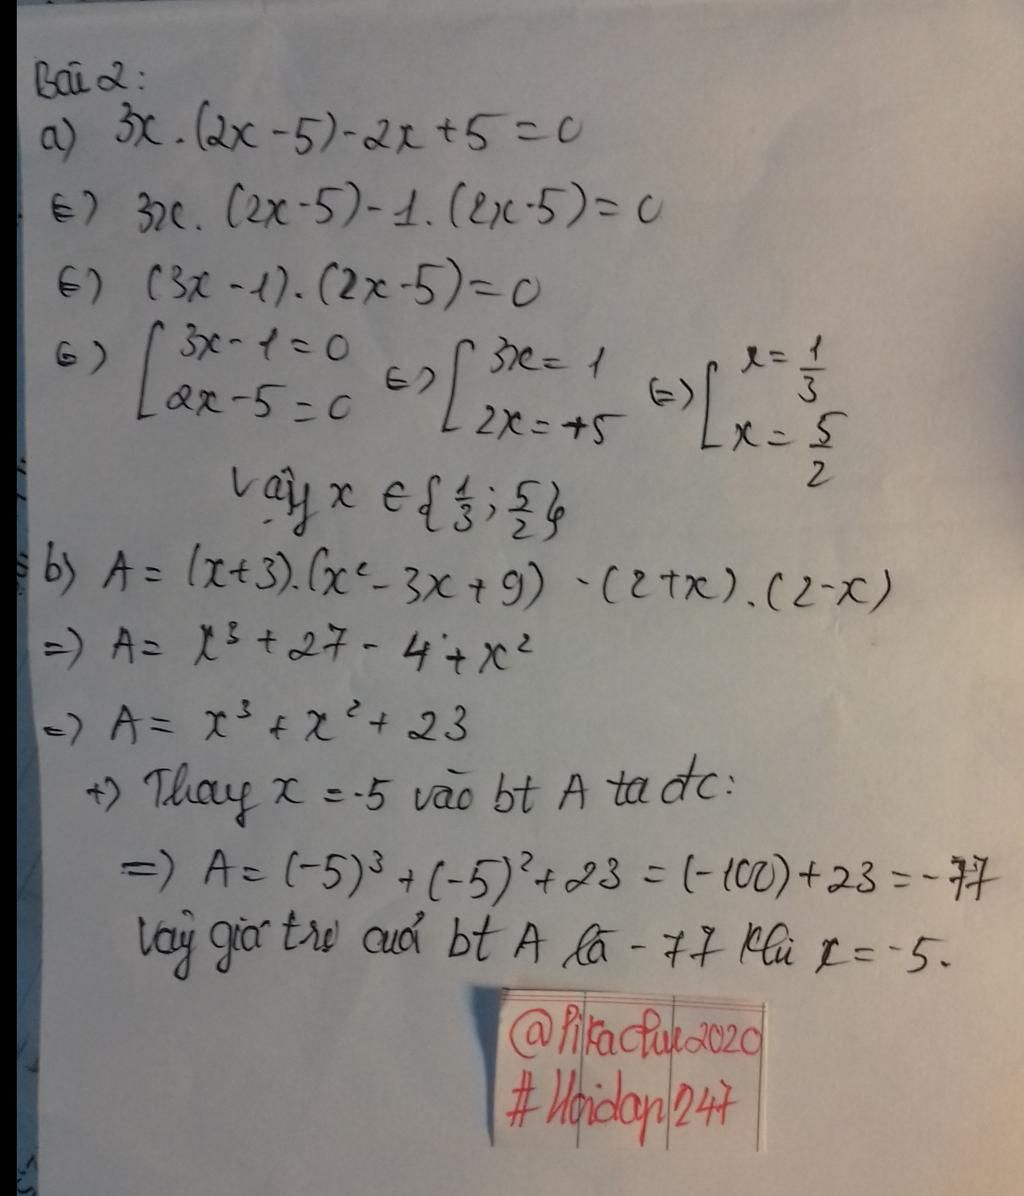 Bài 2:
a) 3x.(2x-5)-2x+5=0
<=> 3x.(2x-5)-1.(2x-5)=0
<=> (3x-1).(2x-5)=0
<=> [3x-1=0 <=> [3x=1 <=> [x=1/3
2x-5=0 2x=+5 x=5/2
Vậy x ∈ {1/3; 5/2}
b) A=(x+3).(x²-3x+9) -(2+x).(2-x)
=> A= x³+27-4+x²
=> A= x³+x²+23
+) Thay x=-5 vào bt A ta đc:
=> A=(-5)³+(-5)²+23=(-100)+23=-77
Vậy giá trị của bt A là -77 khi x=-5.
@Pikachuu2020
#Hoidap247